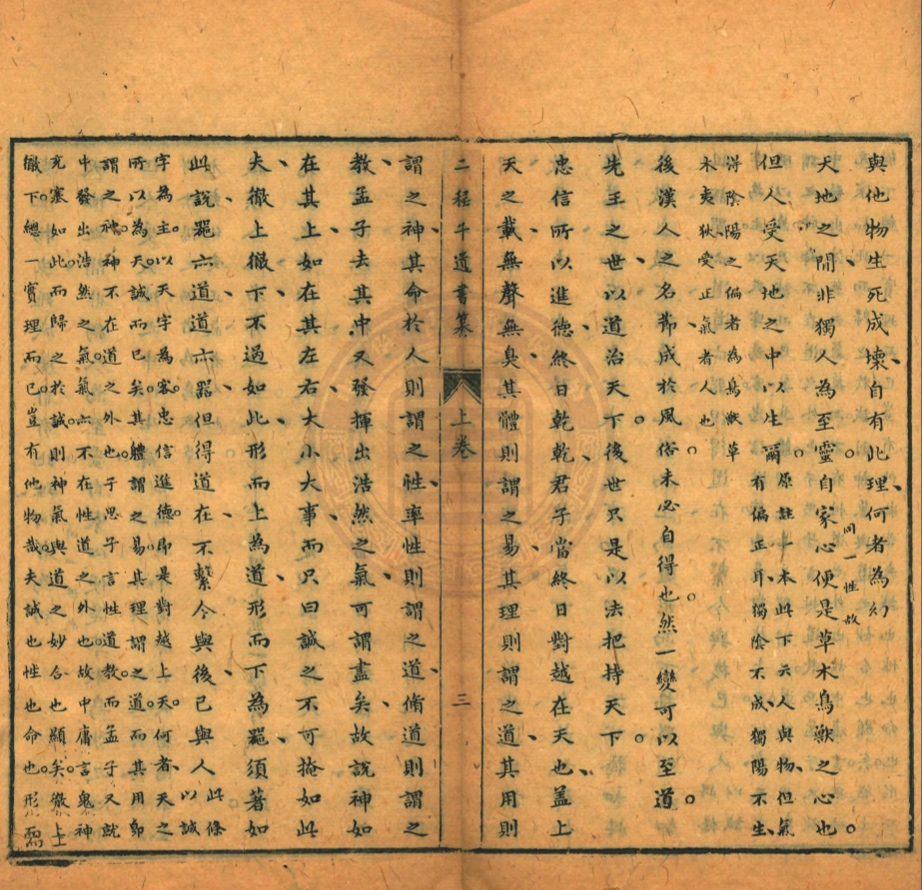 與他物生死成壞自有此理何者為幻
天地之間非獨人為至靈自家心便是草木鳥獸之心也
同一性故
但人受天地之中以生爾
原註一本此下云人與物但氣
有偏正耳獨陰不成獨陽不生
得陰陽之偏者為鳥獸草
木夷狄受正氣者人也
後漢人之名節成於風俗未必自得也然一變可以至道
先王之世以道治天下後世只是以法把持天下
忠信所以進德終日乾乾君子當終日對越在天也蓋上
天之載無聲無臭其體則謂之易其理則謂之道其用則
二程子遺書纂 上卷 三
謂之神其命於人則謂之性率性則謂之道脩道則謂之
教孟子去其中又發揮出浩然之氣可謂盡矣故說神如
在其上如在其左右大小大事而只曰誠之不可掩如此
夫徹上徹下不過如此形而上為道形而下為器須著如
此說器亦道道亦器但得道在不繫今與後已與人
此條
以誠
字為主以天字為客忠信進德即是對越上天何者天之
所以為天誠而已矣其體謂之易其理謂之道而其用郎
謂之神神不在道之外也子思子言性道教而孟子又就
中發出浩然之氣氣亦不在性道之外也故中庸言鬼神
充塞如此而歸之於誠則神氣與道之妙合也顯矣徹上
徹下總一實理而已豈有他物哉夫誠也性也命也形而